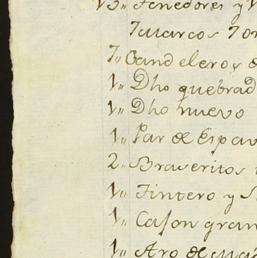 15,, Tenedores y
7 marcos 7 on
7,, Candeleros d
1,, Dho quebrad
1,, Dho nuevo
1,, Par de Espav
2,, Braseritos
1,, Tintero y S
1,, Cajon gran
1,, Aro de